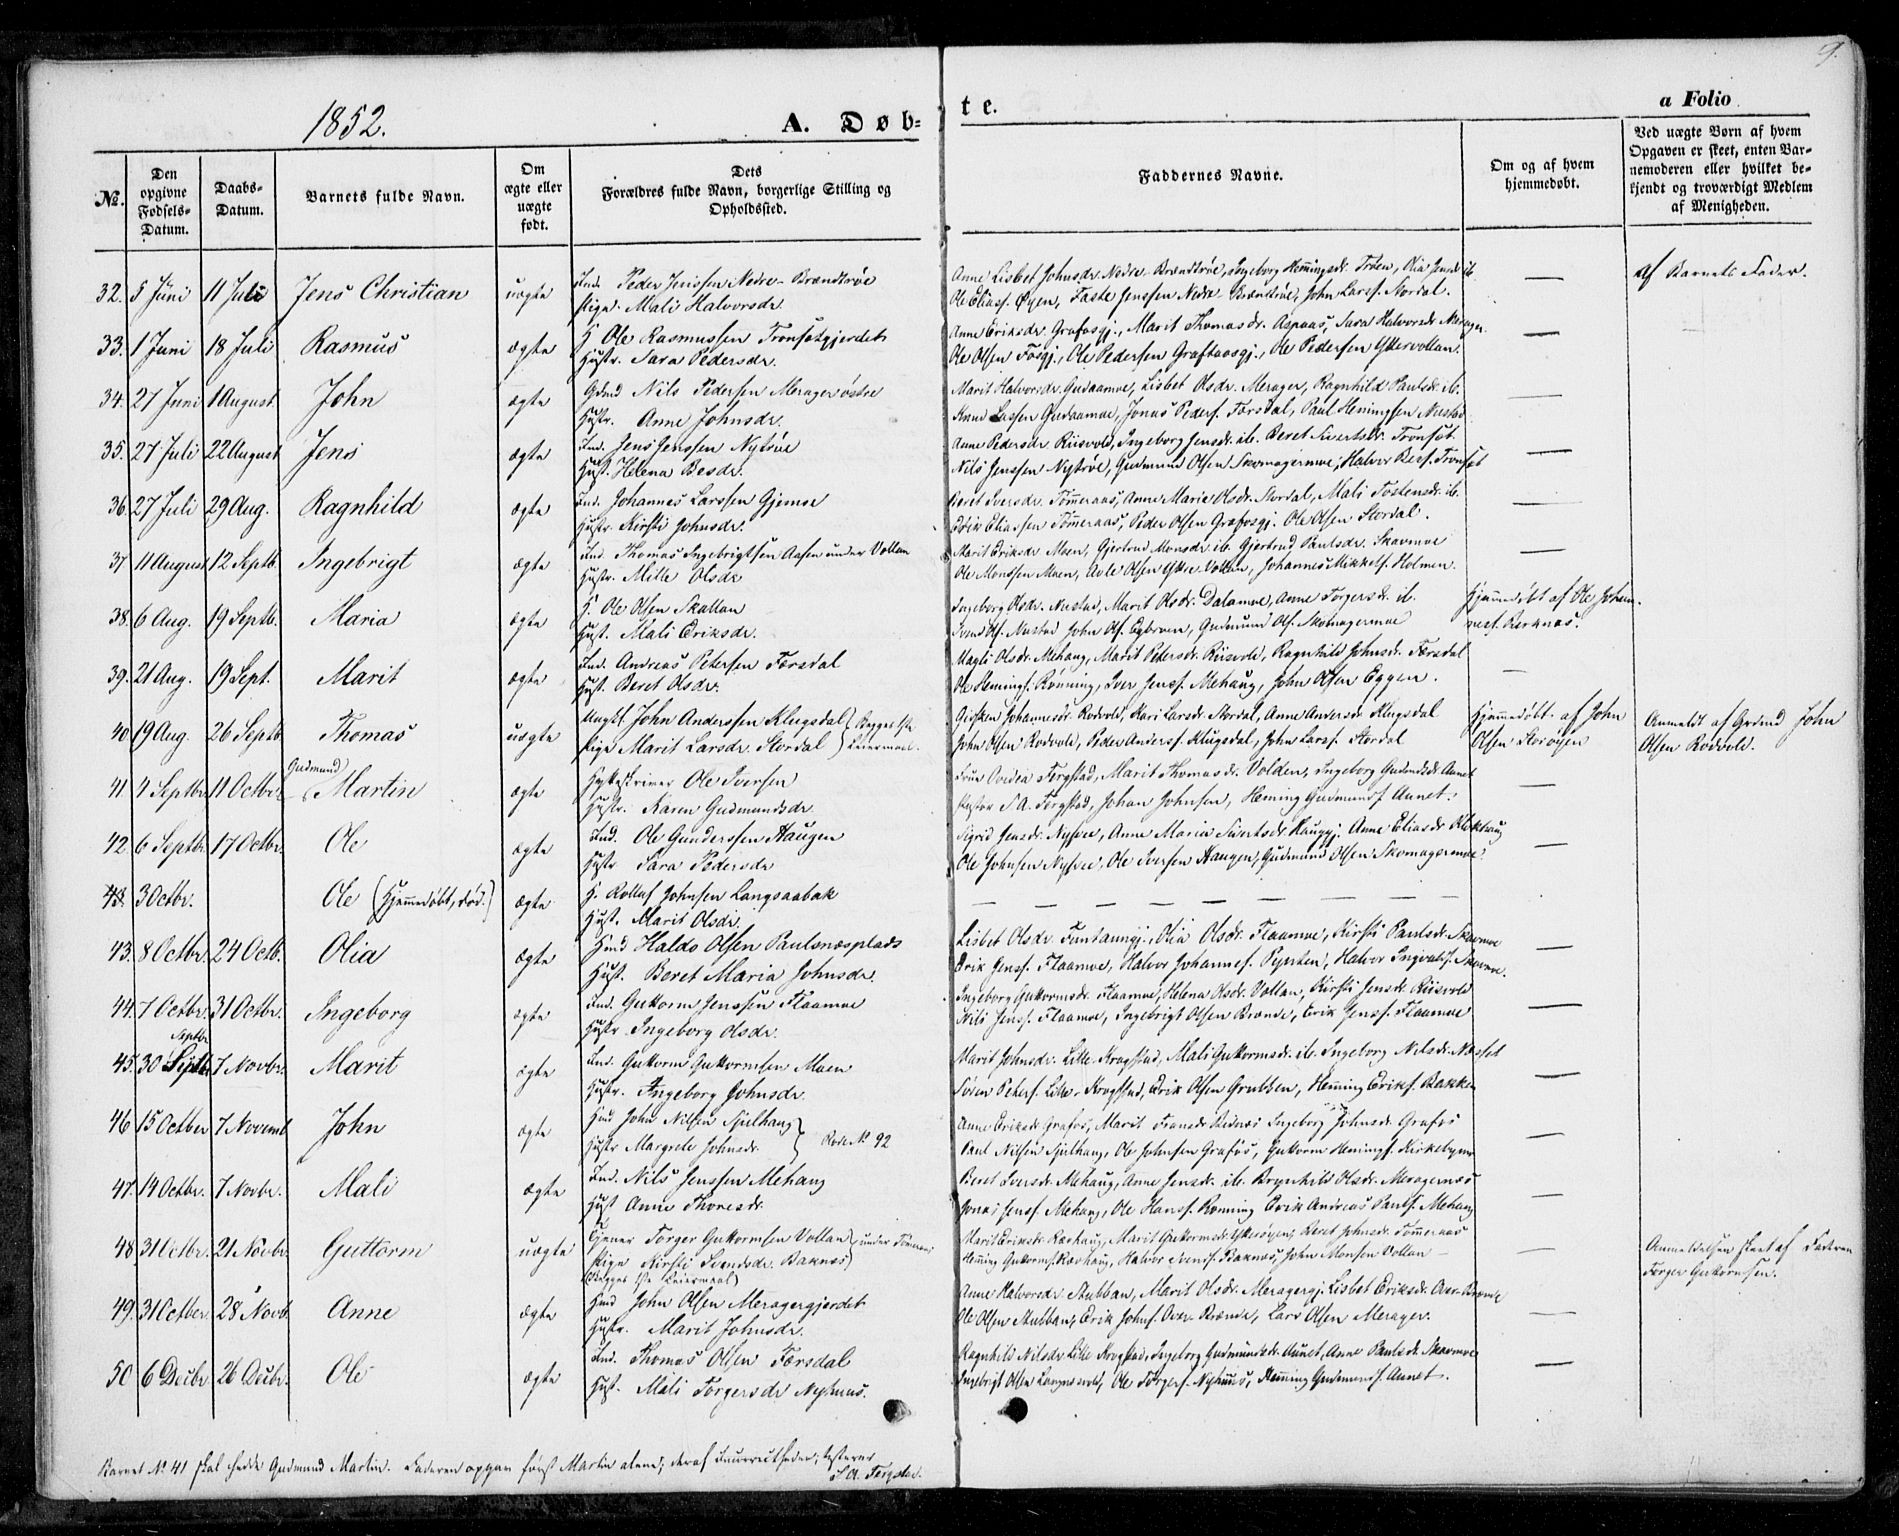 9.
1852.
A. Døb-
te.
a Folio
No.
Den opgivne Fødsels-Datum.
Daabs-Datum.
Barnets fulde Navn.
Om ægte eller uægte født.
Dets Forældres fulde Navn, borgerlige Stilling og Opholdssted.
Faddernes Navne.
Om og af hvem hjemmedøbt.
Ved uægte Børn af hvem Opgaven er skeet, enten Barnemoderen eller hvilket bekjendt og troværdigt Medlem af Menigheden.
32. 5 Juni 11 Juli Jens Christian uægte Ind. Peder Jenssen Nedre-Brændtrøe
Pige Mali Halvorsdr.
Anne Lisbet Johnsdr. Nedre-Brændtrøe, Ingeborg Hemingsdr. Trøen, Olia Jensdr. ib.
Ole Eliass. Øyen, Faste Jenssen Nedre Brændtrøe, John Larss. Stordal.
— af Barnets Fader.
33. 1 Juni 18 Juli Rasmus ægte H Ole Rasmussen Tronsetgjerdet
Hustr. Sara Pedersdr.
Anne Eriksdr. Grafosgj., Marit Thomasdr. Aspaas, Sara Halvorsdr. Merager
Ole Olsen Fosgj., Ole Pedersen Grafaasgj., Ole Pedersen Yttervollan.
—
34. 27 Juni 1 August John ægte Gdmd Nils Pedersen Merager østre
Hustr. Anne Johnsdr.
Marit Halvorsdr. Gudaamoe, Lisbet Olsdr. Merager, Ragnhild Paulsdr. ib.
Arnt Larssen Gudaamoe, Jonas Peders. Færsdal, Paul Hemingsen Nustad
—
35. 27 Juli 22 August Jens ægte Ind. Jens Jenssen Nytrøe
Hust. Helena Besdr.
Anne Pedersdr. Riisvold, Ingeborg Jensdr. ib. Beret Sivertsdr. Tronset
Nils Jenssen Nytrøe, Gudmund Olsen Skomagermoe, Halvor Bers. Tronset
—
36. 27 Juli 29 Aug. Ragnhild ægte Ind. Johannes Larssen Gjemoe
Hustr. Kirsti Johnsdr.
Beret Iversdr. Tømmeraas, Anne Marie Olsdr. Stordal, Mali Tostensdr. ib.
Erik Eliassen Tømmeraas, Peder Olsen Grafosgj. Ole Olsen Stordal.
—
37 11 August 12 Septb. Ingebrigt ægte Ind. Thomas Ingebrigtsen Aasen under Vollan
Hustr. Mille Olsdr
Marit Eriksdr. Moen, Gjertrud Monsdr. ib. Gjertrud Paulsdr. Skavmoe
Ole Monssen Moen, Avle Olsen Yttre-Vollan, Johannes Mikkels. Holmen.
—
38. 6 Aug. 19 Septb. Maria ægte H. Ole Olsen Skallan
Hust. Mali Eriksdr.
Ingeborg Olsdr. Nustad, Marit Olsdr. Dalamoe, Anne Torgersdr. ib.
Svend Ols. Nustad John Ols. Egbroen, Gudmund Ols. Skomagermoe
Hjemmedøbt af Ole Johanness. Rerknæs.
39. 21 Aug. 19 Sept. Marit ægte Ind. Andreas Petersen Færsdal
Hust. Beret Olsdr.
Magli Olsdr. Mehaug, Marit Petersdr. Riisvold, Ragnhild Johnsdr. Færsdal
Ole Hemings. Rønning, Iver Jenss. Mehaug, John Olsen Eggen.
—
40 19 Aug. 26 Septb. Thomas uægte Ungkl. John Anderssen Klugsdal
Pige Marit Larsdr. Stordal } Begges 1ste Leiermaal.
Gjøsken Johannesdr. Rodvold, Kari Larsdr. Stordal, Anne Andersdr. Klugsdal
John Olsen Rodvold, Peder Anderss. Klugsdal, John Larss. Stordal
Hjemmedøbt af John Olsen Storøyen
Anmeldt af Grdmd John Olsen Rodvold.
41. 4 Septbr. 11 Octbr. Gudmund Martin ægte Kirkeskriver Ole Iversen
Hustr. Karen Gudmundsdr.
Frue Ovedia Fergstad, Marit Thomasdr. Volden, Ingeborg Gudmdsdr. Aunet
Pastor S. A. Fergstad, Johan Johnsen, Heming Gudmunds. Aunet.
—
42 6 Septbr. 17 Octbr. Ole ægte Ind. Ole Gunderssen Haugen
Hustr. Sara Pedersdr
Sigrid Jensdr. Nysvee, Anne Maria Sivertsdr. Haugj. Anne Eliasdr. Klokhaug
Ole Johnsen Nysvee, Ole Iversen Haugen, Gudmund Olsen Skomagermoe.
—
43. 3 Octbr. Ole (Hjemmedøbt, død.) ægte H. Rolluf Johnsen Langsaabak
Hust. Marit Olsdr.
— — — — — — — — —
43. 8 Octbr. 24 Octb. Olia ægte Hmd Haldo Olsen Paulsnæsplads
Hust. Beret Maria Johnsdr.
Lisbet Olsdr. Funtaungj., Olia Olsdr. Flaamoe, Kirsti Paulsdr. Skavmoe
Erik Jenss. Flaamoe, Halvor Johanness. Pynten, Halvor Ingvalds. Skavmoe.
—
44. 7 Octbr. 31 Octbr. Ingeborg ægte Ind. Guttorm Jenssen Flaamoe
Hustr. Ingeborg Olsdr.
Ingeborg Guttormsdr. Flaamoe, Helena Olsdr. Vollan, Kirsti Jensdr. Riisvold
Nils Jenss. Flaamoe, Ingebrigt Olsen Brænde, Erik Jenss. Flaamoe
—
45. 30 Septbr 7 Novbr. Marit ægte Ind. Guttorm Guttormsen Moen
Hustr. Ingeborg Johnsdr.
Marit Johnsdr. Lille-Krogstad, Mali Guttormsdr. ib. Ingeborg Nilsdr. Næsset
Søren Peters. Lille-Krogstad, Erik Olsen Grutsen, Heming Eriks. Bakken
—
46 15 Octber 7 Novemb John ægte Hmd John Nilsen Spelhaug
Hustr Margrete Johnsdr. } Rode No 92
Anne Eriksdr. Grafos, Marit Fransdr. Ingeborg Johnsdr. Grafos
Paul Nilsen Spelhaug, Ole Johnsen Grafos, Guttorm Hemings. Kirkebyen
—
47. 14 Octbr. 7 Novbr. Mali ægte Ind. Nils Jenssen Mehaug
Hust Anne Thoresdr.
Beret Iversdr. Mehaug, Anne Jensdr. ib. Brynhild Olsdr. Meragernæs
Jonas Jenss. Mehaug, Ole Hanss. Rønning Erik Andreas Pauls. Mehaug
—
48 31 Octbr. 21 Novbr. Guttorm uægte Tjener Torger Guttormsen Vollan
Pige Kirsti Svendsdr. Baknæs } under Tømmeraas
(Begges 1ste Leiermaal)
Marit Eriksdr. Ravhaug, Marit Guttormsdr. Yttersøyen, Beret Johnsdr. Tømmeraas
Heming Guttorms. Ravhaug, Halvor Svends. Baknæs, John Monsen Vollan —
Anmeldelsen skeet af Faderen Torger Guttormsen.
49. 31 Octber. 28 Novb. Anne ægte Hmd John Olsen Meragergjerdet
Hustr. Marit Johnsdr.
Anne Halvorsdr. Stubban, Marit Olsdr. Meragergj. Lisbet Eriksdr. Over-Brænde
Ole Olsen Stubban, Erik Johns. Over-Brænde, Lars Olsen Merager.
—
50 6 Decbr. 26 Decbr. Ole ægte Ind. Thomas Olsen Færsdal
Hust. Mali Torgersdr Nyhuus.
Ragnhild Nilsdr. Lille Krogstad, Ingeborg Gudmundsdr. Aunet, Anne Paulsdr. Skavmoe
Ingebrigt Olsen Langnesvold, Ole Torgers. Nyhuus, Heming Gudmunds. Aunet.
—
Barnet No 41 skal hedde Gudmund Martin. Faderen opgav først Martin alene; deraf Incorrectheden, testerer
S. A. Fergstad.